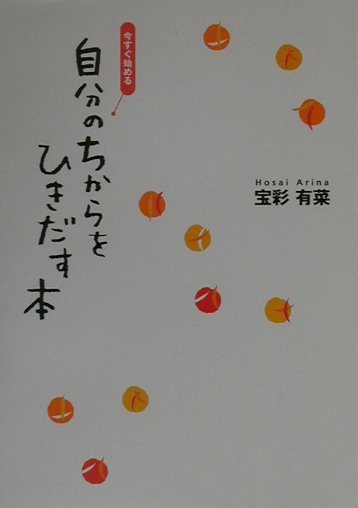 今すぐ始める
自分のちからを
ひきだす
本
Hosai Arina
宝彩 有菜